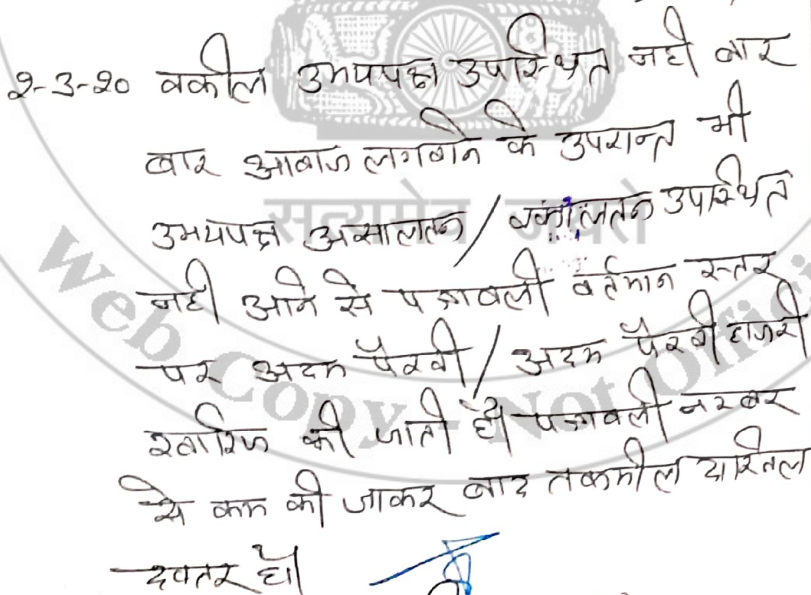 2-3-20 वकील उभयपक्ष उपस्थित नही बार
बार आबाज लगबाने के उपरान्त भी
उभयपक्ष असालतन / वकालतन उपस्थित
नही आने से पत्रावली वर्तमान स्तर
पर अदम पैरवी / अदम पैरवी हाजरी
खारिज की जाती है। पत्रावली नम्बर
से कम की जाकर बाद तकमील दाखिल
दफ्तर हो।
सत्यमेव जयते
Web Copy - Not Offici